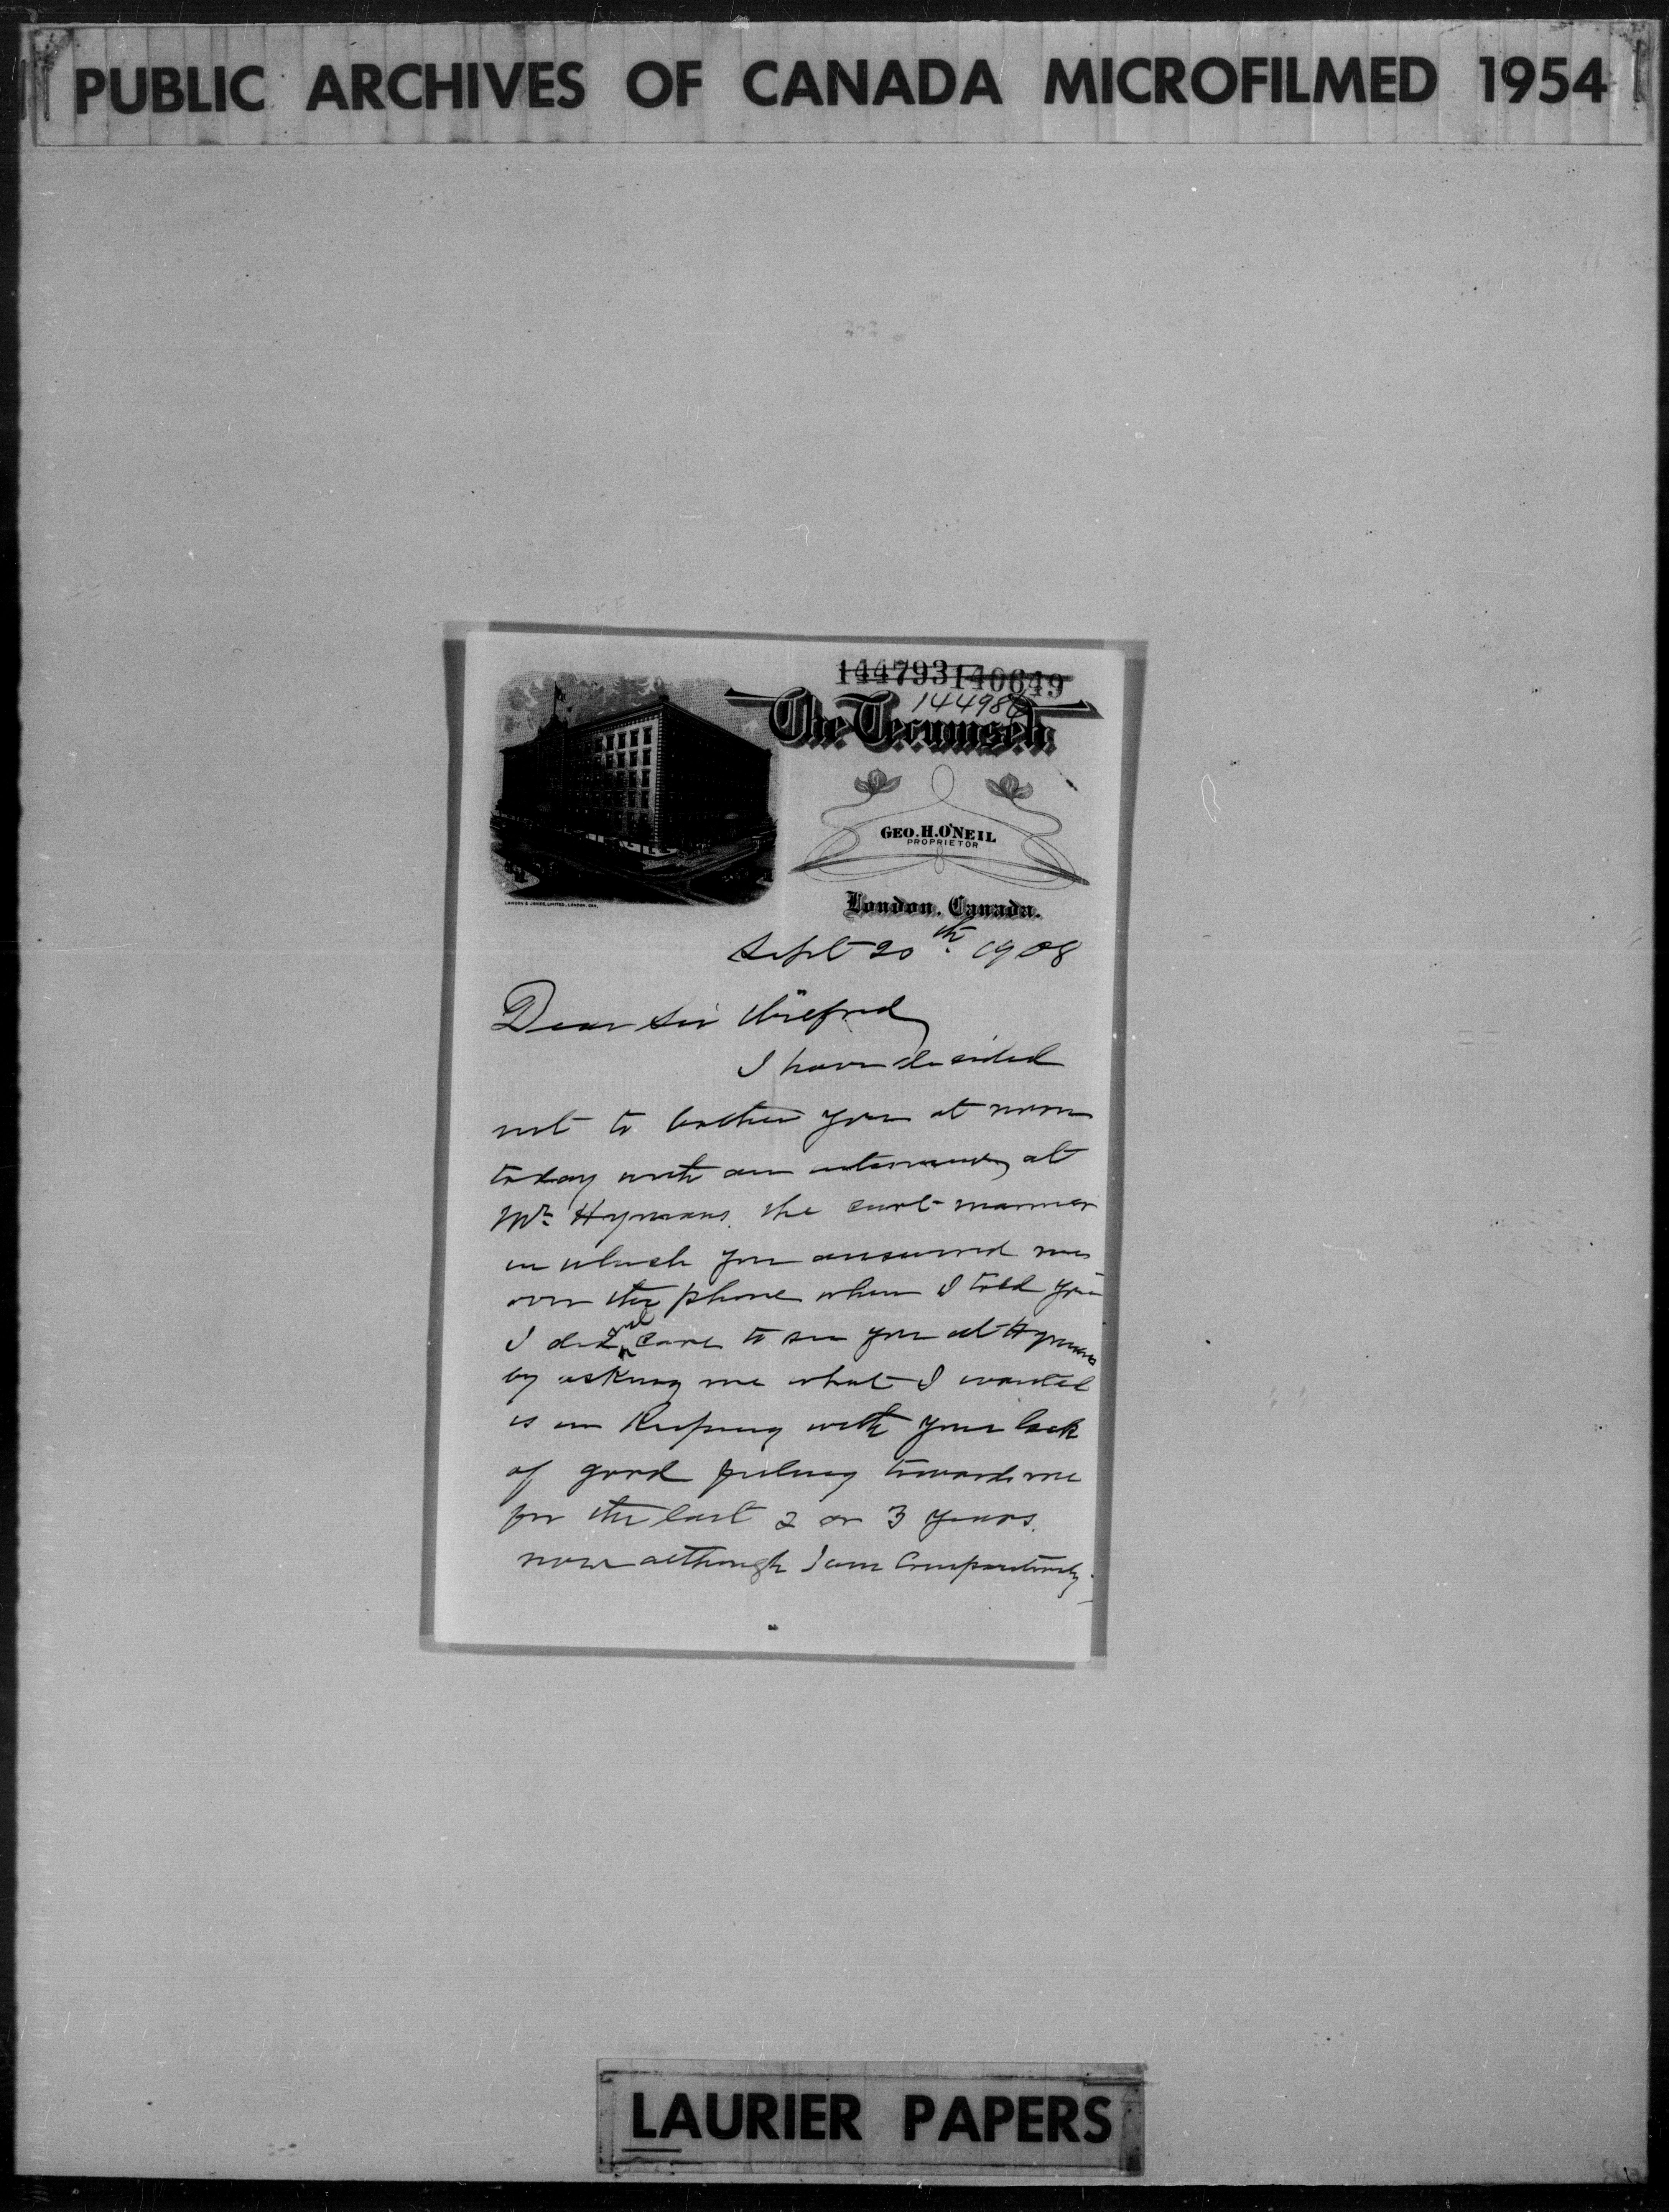 PUBLIC ARCHIVES OF CANADA MICROFILMED 1954
144793 140649
144986
The Tecumseh
GEO. H. O'NEIL
PROPRIETOR
London, Canada.
LAWSON & JONES, LIMITED, LONDON, ONT.
Sept 20th 1908
Dear Sir Wilfrid
I have decided
not to bother you at noon
today with an interview at
Mr Hymans. The curt manner
in which you answered me
over the phone when I told you
I did not care to see you at Hymans
by asking me what I wanted
is in keeping with your lack
of good feeling towards me
for the last 2 or 3 years.
now although I am comparatively
LAURIER PAPERS